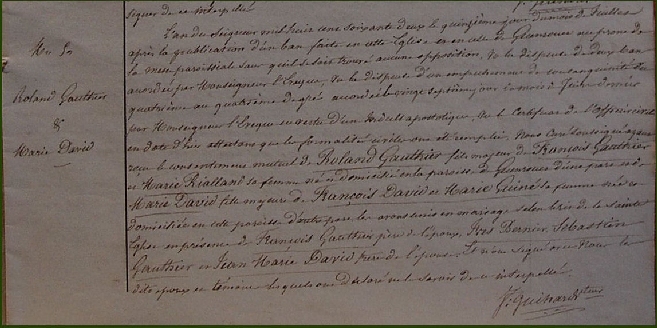 signer de ce interpellé
L'an du Seigneur mil huit cent soixante deux le quinzième jour du mois de Juillet
après la publication d'un ban faite en cette Eglise et en celle de Glénouse au prone de
la messe paroissiale sans qu'il se soit trouvé aucune opposition, Vu la dispense de deux ban
accordée par Monseigneur l'Evêque, Vu la dispense d'un empêchement de consanguinité du
quatrième au quatrième degré accordée le vingt septième jour du mois de Juin dernier
par Monseigneur l'Evêque en vertu d'un Indult apostolique, Vu le Certificat de l'officier civil
en date d'hier attestant que les formalités civiles ont été remplies, Nous Curé soussigné avons
reçu le consentement mutuel de Roland Gauthier fils majeur de François Gauthier
et Marie Rialland sa femme né et domicilié en la paroisse de d'une part et de
Marie David fille majeure de François David et Marie sa femme née et
domiciliée en cette paroisse d'autre part les avons unis en mariage selon les rites de la sainte
Eglise en présence de François Gauthier père de l'époux, Sébastien
Gauthier et Jean Marie David frère de l'épouse. Et n'ont signé avec Nous les
dits époux et témoins lesquels ont déclaré ne le savoir de ce interpellés.
Mar. de
Roland Gauthier
&
Marie David